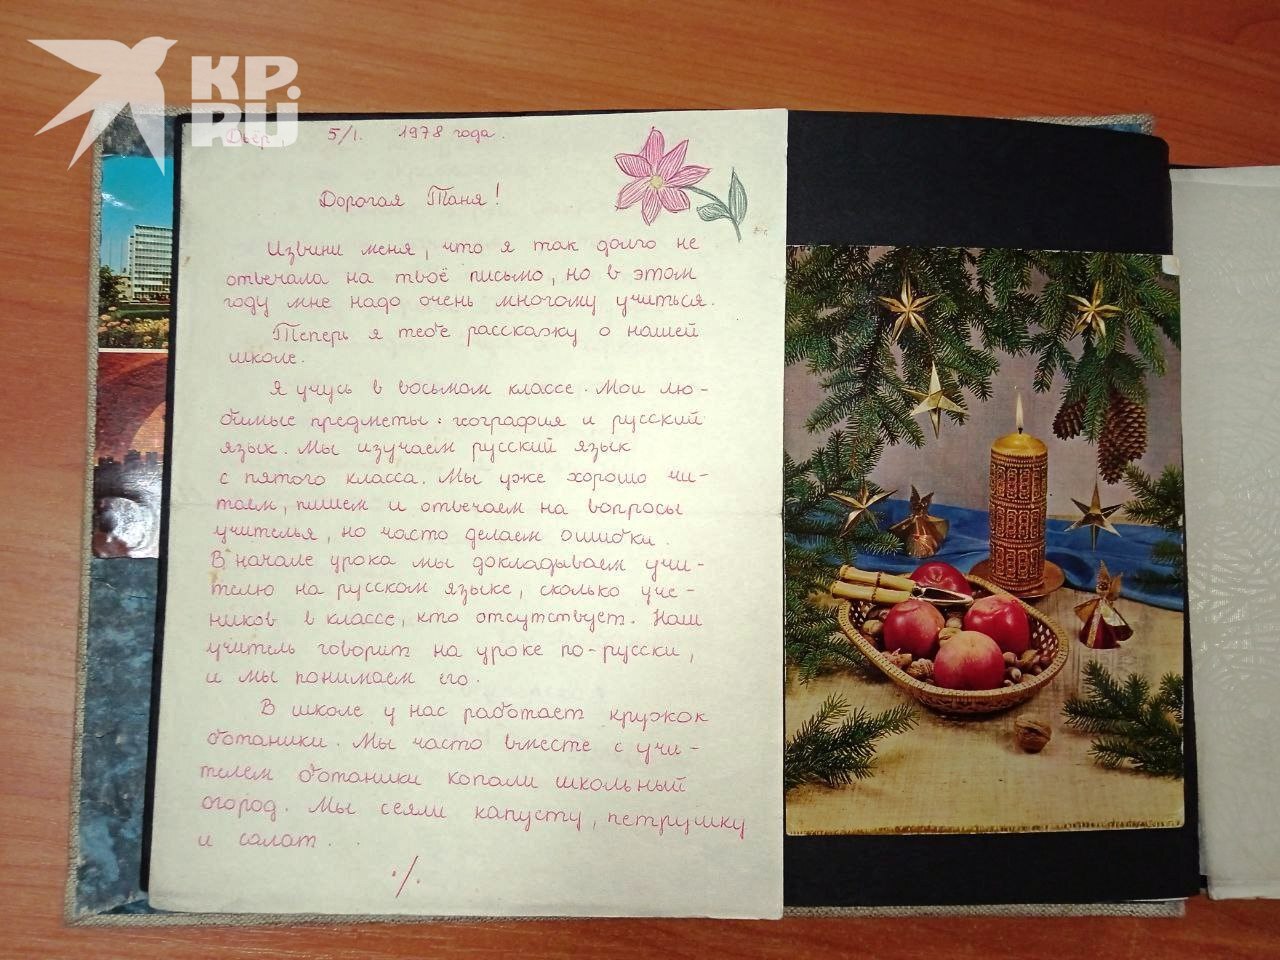 KP.
RU
Дьёр, 5/I. 1978 года.
Дорогая Таня!
Извини меня, что я так долго не
отвечала на твоё письмо, но в этом
году мне надо очень многому учиться.
Теперь я тебе расскажу о нашей
школе.
Я учусь в восьмом классе. Мои лю-
бимые предметы: география и русский
язык. Мы изучаем русский язык
с пятого класса. Мы уже хорошо чи-
таем, пишем и отвечаем на вопросы
учителья, но часто делаем ошибки.
В начале урока мы докладываем учи-
телю на русском языке, сколько уче-
ников в классе, кто отсутствует. Наш
учитель говорит на уроке по-русски,
и мы понимаем его.
В школе у нас работает кружок
ботаники. Мы часто вместе с учи-
телем ботаники копали школьный
огород. Мы сеяли капусту, петрушку
и салат.
./.